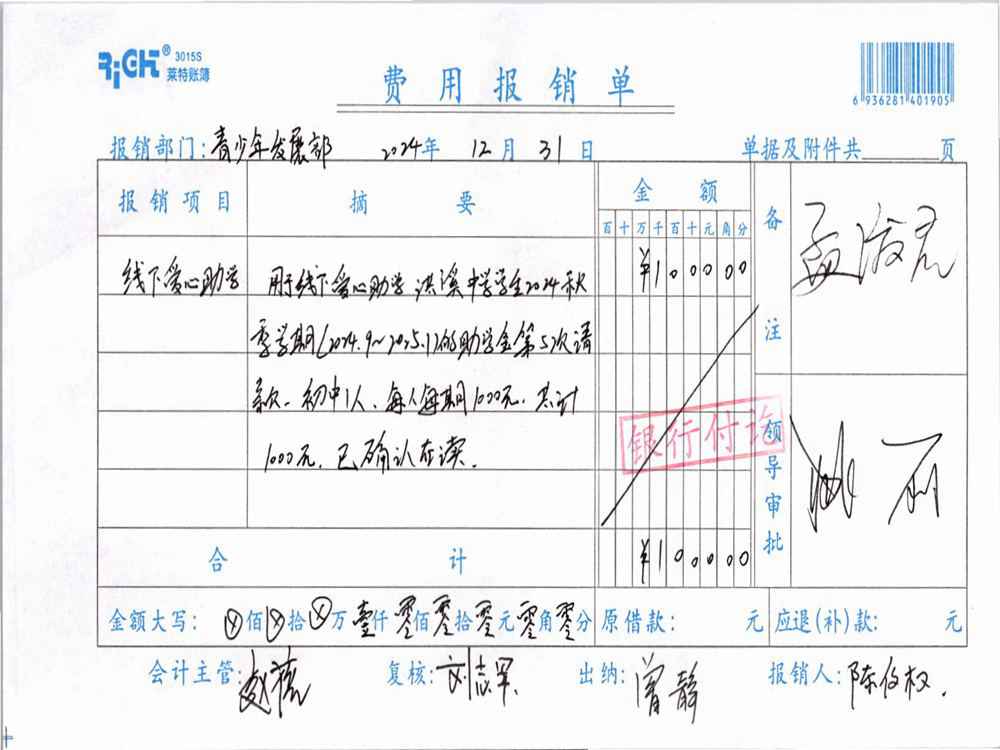 RiGHT® 3015S
莱特账簿
费用报销单
6 936281 401905
报销部门:青少年发展部 2024年 12月 31日 单据及附件共 页
报销项目 摘要 金额 备注
百十万千百十元角分
线下爱心助学 用于线下爱心助学 洪溪中学学生2024秋 ¥1000 00
季学期(2024.9~2025.1)的助学金第5次请
款。初中1人、每人每期1000元.共计
1000元.已确认在读.
银行付讫
领导审批
合计 ¥1000 00
金额大写: ⊗佰⊗拾⊗万壹仟零佰零拾零元零角零分 原借款: 元 应退(补)款: 元
会计主管: 复核:刘志军 出纳:曾静 报销人:陈俊权